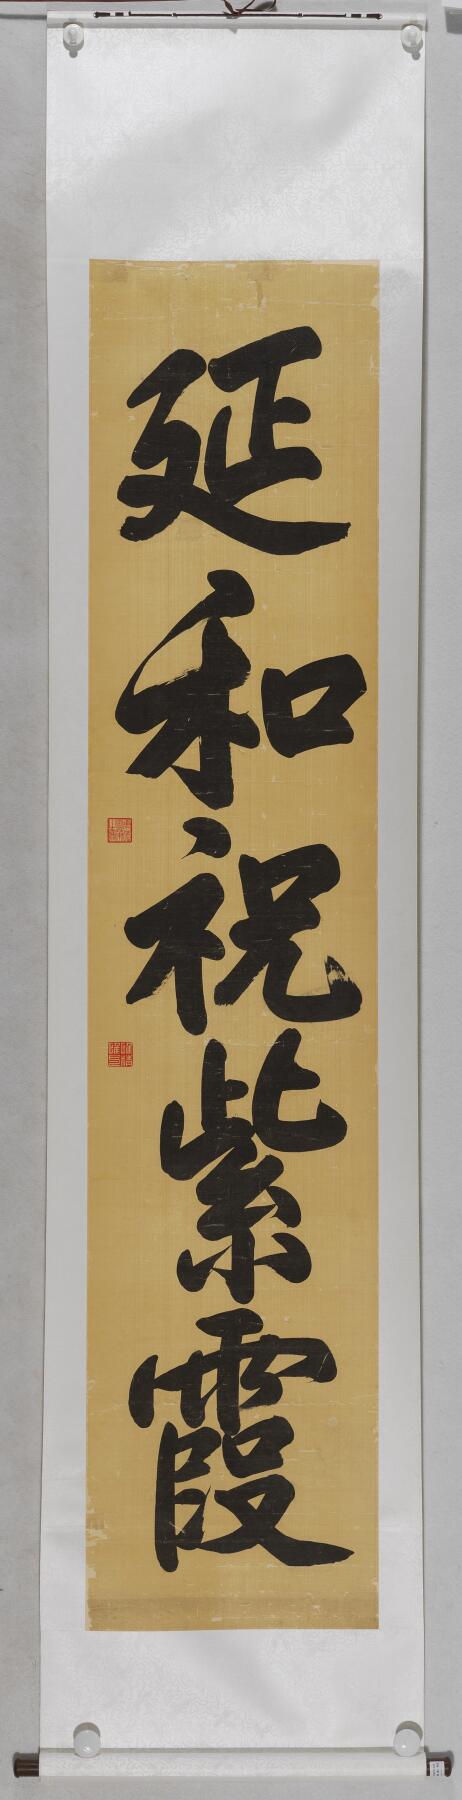 延和祝紫霞